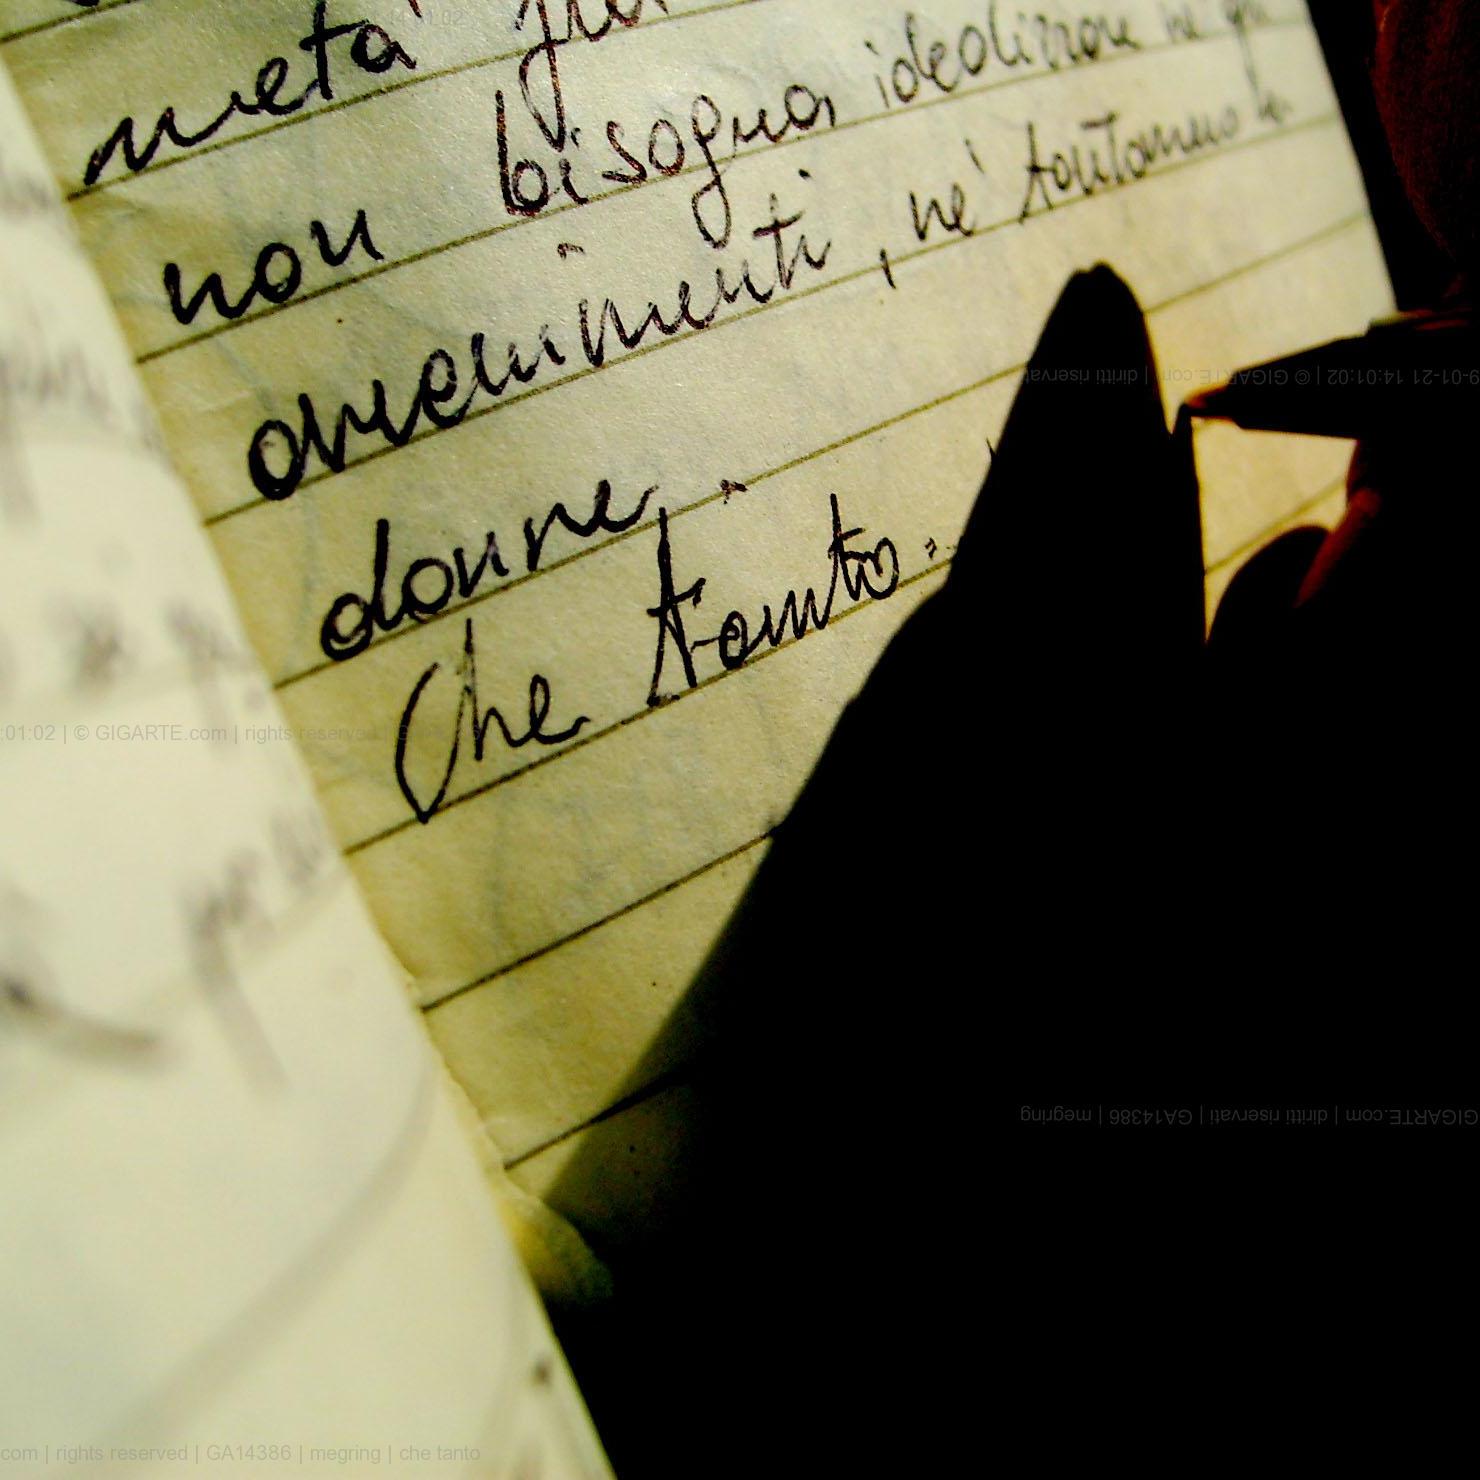 metà
non bisogna idealizzare né gli
avvenimenti, né tantomeno le
donne.
Che tanto..
:01:02 | © GIGARTE.com | rights reserved |
9-01-21 14:01:02 | © GIGARTE.com | diritti riservati
GIGARTE.com | diritti riservati | GA14386 | megring
com | rights reserved | GA14386 | megring | che tanto